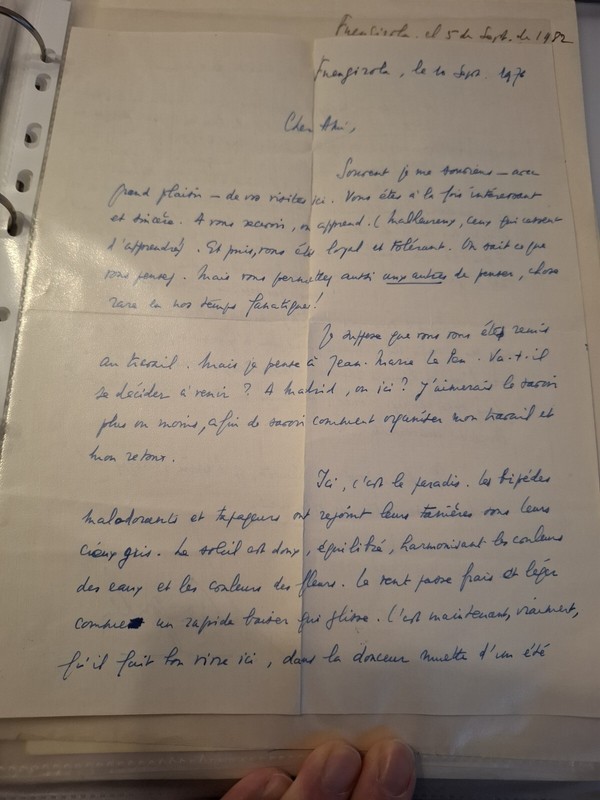 Fuengirola. el 5 de Sept. de 1982
Fuengirola, le 10 Sept. 1976
Cher Ami,
Souvent je me souviens – avec
grand plaisir – de vos visites ici. Vous êtes à la fois intéressant
et sincère. A vous recevoir, on apprend. (Malheureux, ceux qui cessent
d'apprendre). Et puis, vous êtes loyal et tolérant. On sait ce que
vous pensez. Mais vous permettez aussi aux autres de penser, chose
rare en nos temps fanatiques!
Je suppose que vous vous êtes remis
au travail. Mais je pense à Jean-Marie Le Pen. Va-t-il
se décider à venir? A Madrid, ou ici? J'aimerais le savoir
plus ou moins, afin de savoir comment organiser mon travail et
mon retour.
Ici, c'est le paradis. Les bipèdes
malodorants et tapageurs ont rejoint leurs tanières sous leurs
cieux gris. Le soleil est doux, équilibré, harmonisant les couleurs
des eaux et les couleurs des fleurs. Le vent passe frais et léger
comme un rapide baiser qui glisse. C'est maintenant, vraiment,
qu'il fait bon vivre ici, dans la douceur muette d'un été